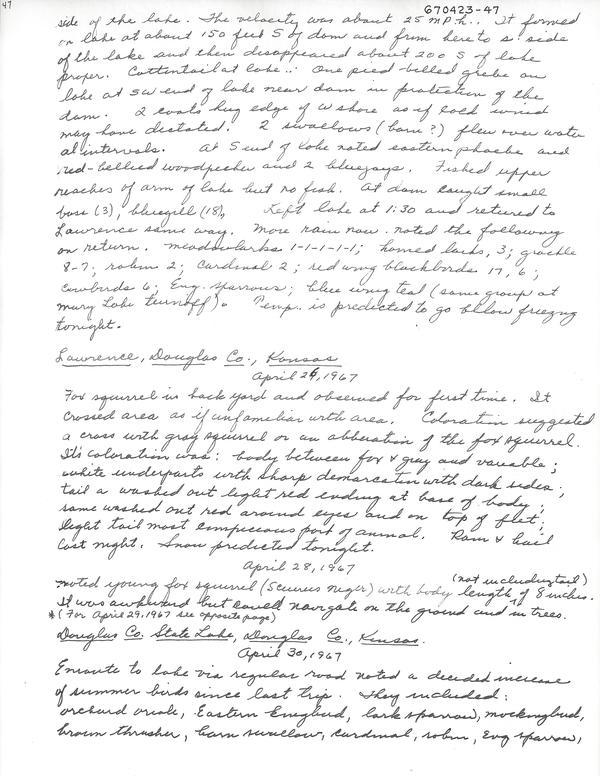 47
670423-47
side of the lake. The velocity was about 25 m.p.h.. It formed
on lake at about 150 feet S of dam and from here to s. side
of the lake and then disappeared about 200 S of lake
proper. Cottontail at lake. One pied-billed grebe on
lake at SW end of lake near dam in protection of the
dam. 2 coots hug edge of W shore as if cold wind
may have dictated. 2 swallows (barn?) flew over water
at intervals. At S end of lake noted eastern phoebe and
red-bellied woodpecker and 2 bluejays. Fished upper
reaches of arm of lake but no fish. At dam caught small
bass (3), bluegill (18), Left lake at 1:30 and returned to
Lawrence same way. More rain now. noted the following
on return. meadowlarks 1-1-1-1-1; horned larks, 3; grackle
8-7; robin 2; Cardinal 2; red wing blackbirds 17, 6;
Cowbirds 6; Eng. sparrows; blue wing teal (same group at
Mary Lake turnoff). Temp. is predicted to go bllow freezing
tonight.
Lawrence, Douglas Co., Kansas
April 24, 1967
Fox squirrel in back yard and observed for first time. It
crossed area as if unfamiliar with area. Coloration suggested
a cross with gray squirrel or an abberation of the fox squirrel.
It's coloration was: body between fox & gray and variable;
white underparts with sharp demarcation with dark sides;
tail a washed out light red ending at base of body;
same washed out red around eyes and on top of feet;
light tail most conspicuous part of animal. Rain & hail
last night. Snow predicted tonight.
April 28, 1967
noted young fox squirrel (Sciurus niger) with body (not including tail) length of 8 inches.
It was awkward but could navigate on the ground and in trees.
* (For April 29, 1967 see opposite page)
Douglas Co. State Lake, Douglas Co., Kansas.
April 30, 1967
Enroute to lake via regular road noted a decided increase
of summer birds since last trip. They included:
orchard oriole, Eastern Kingbird, lark sparrow, mockingbird,
brown thrasher, barn swallow, cardinal, robin, Eng sparrow,